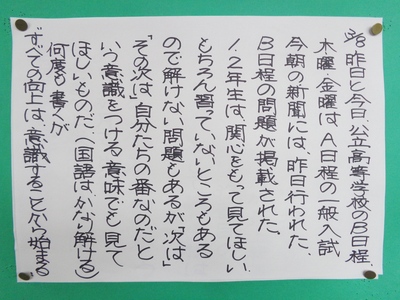 3/8 昨日と今日、公立高等学校のB日程、
木曜・金曜はA日程の一般入試
今朝の新聞には、昨日行われた、
B日程の問題が掲載された。
1、2年生は、関心をもって見てほしい。
もちろん習っていないところもある
ので解けない問題もあるが「次は」
「その次は」自分たちの番なのだと
いう意識をつける意味でも見て
ほしいものだ。（国語はかなり解ける）
何度も書くが
"すべての向上は、意識することから始まる